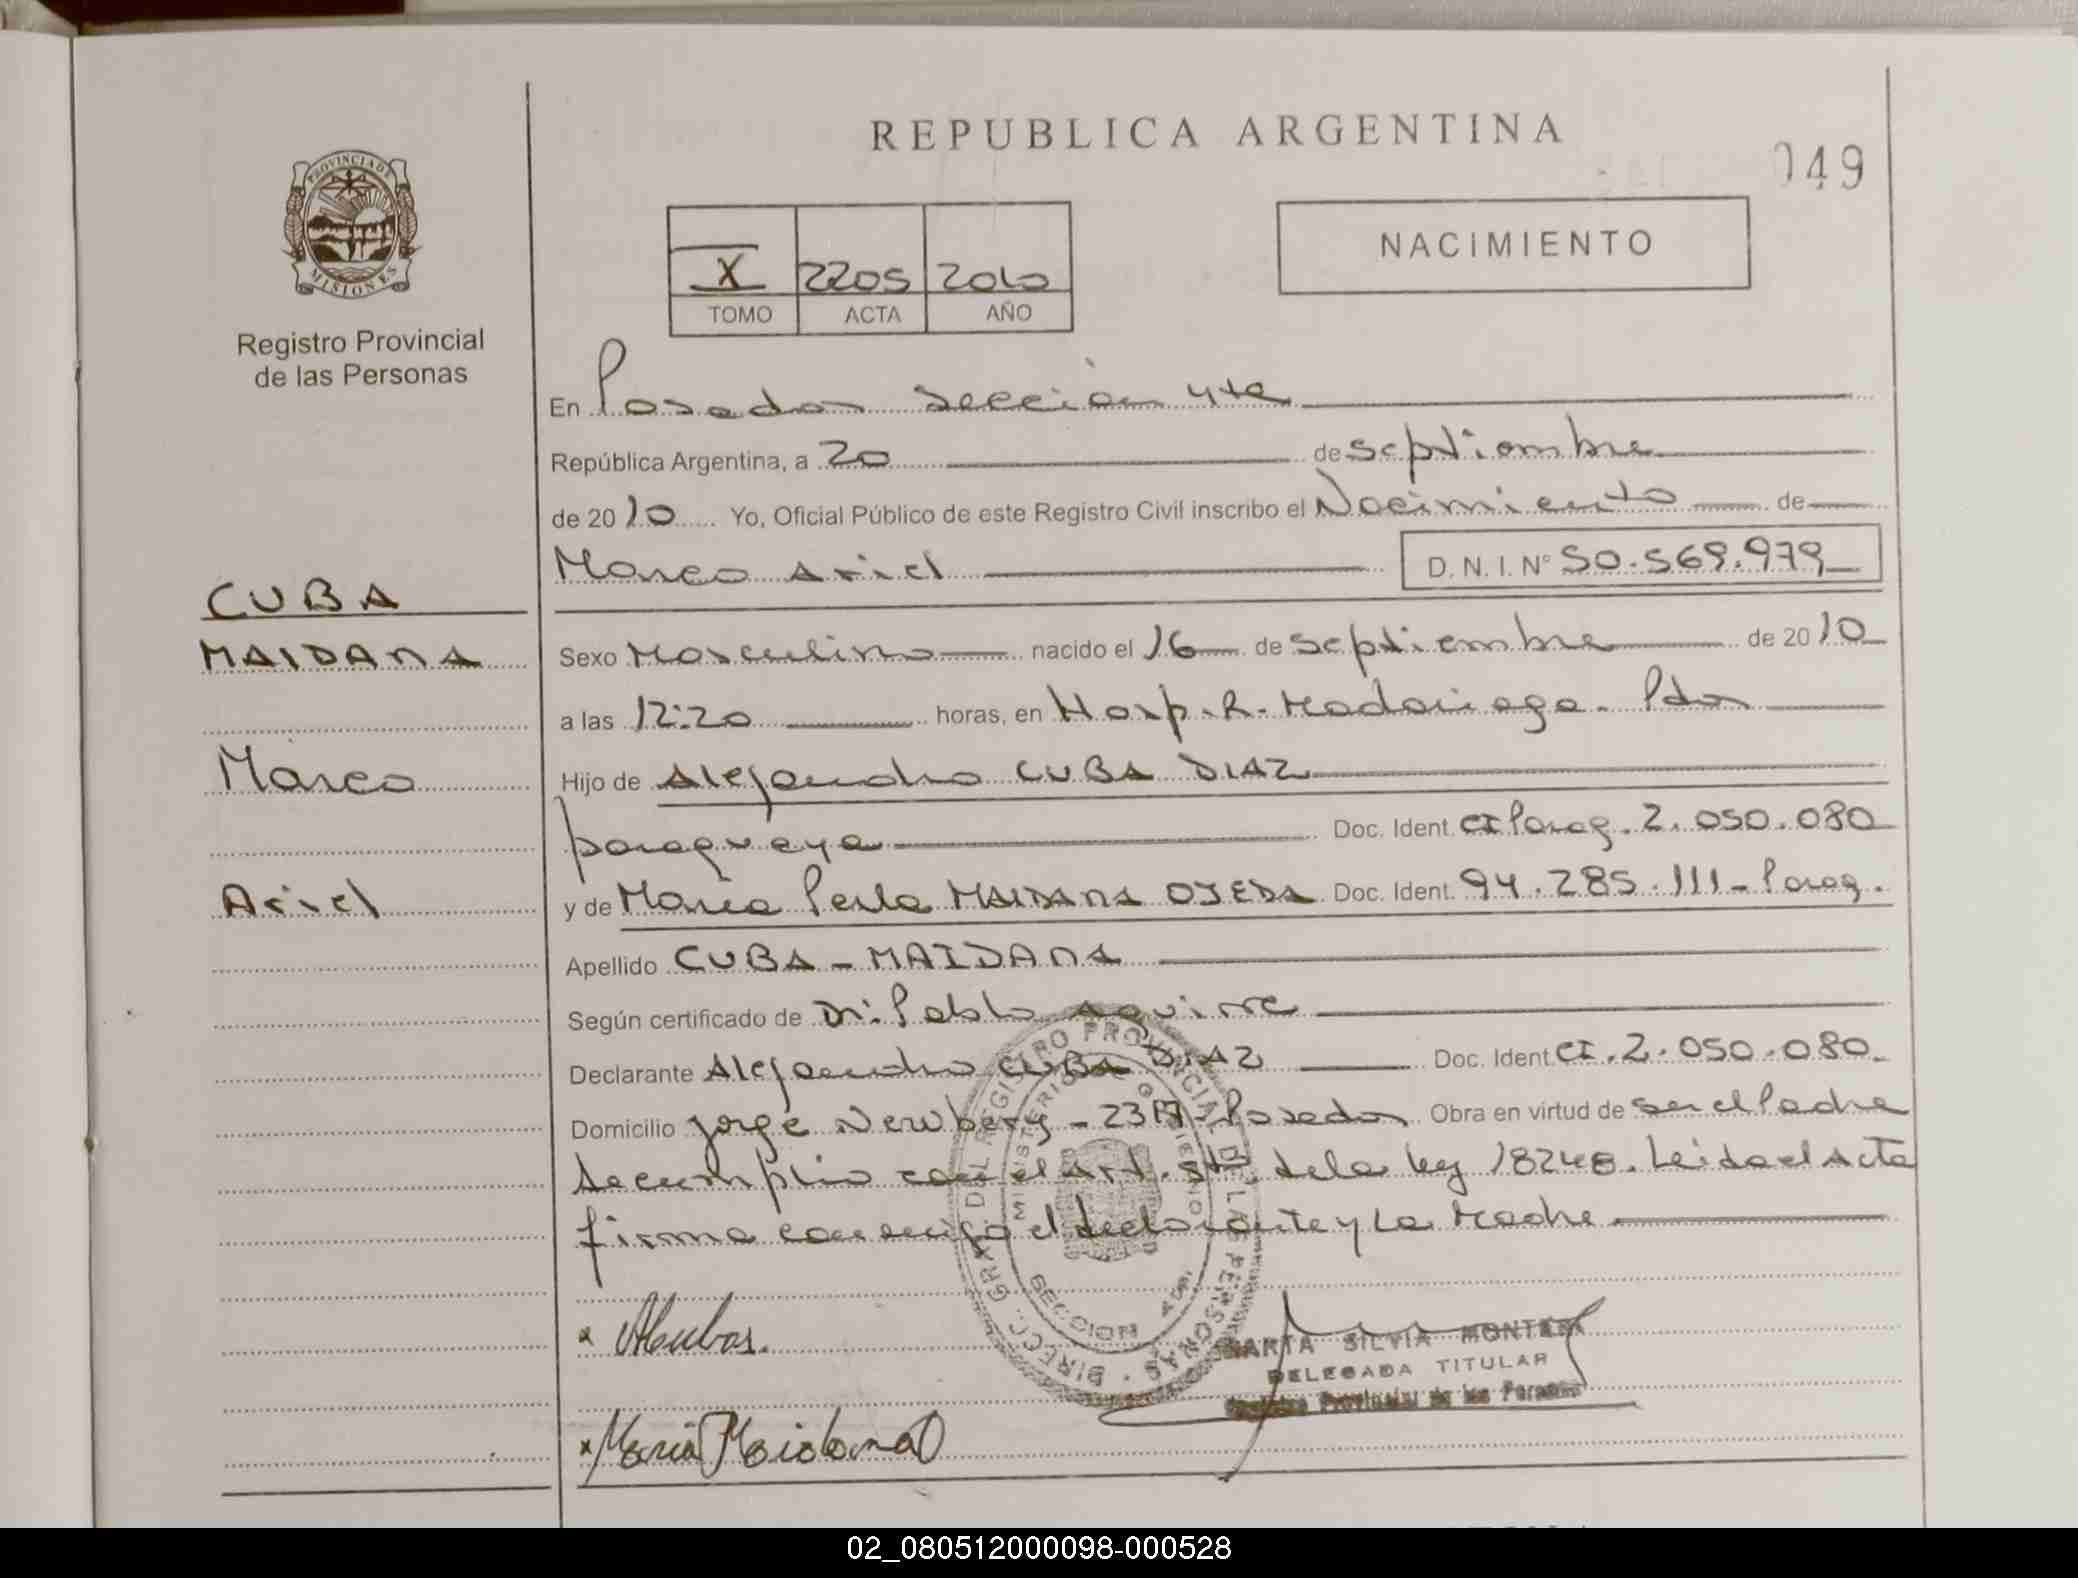 REPUBLICA ARGENTINA
049
PROVINCIA DE
MISIONES
Registro Provincial
de las Personas
X 2205 2010
TOMO ACTA AÑO
NACIMIENTO
En Posadas Sección 4ta
República Argentina, a 20 de septiembre
de 2010 Yo, Oficial Público de este Registro Civil inscribo el Nacimiento de
Marco Ariel D.N.I. Nº 50.569.979
CUBA
MAIDANA
Marco
Ariel
Sexo Masculino nacido el 16 de septiembre de 2010
a las 12:20 horas, en Hosp. R. Madariaga. Pdas
Hijo de Alejandro CUBA DIAZ
paraguaya Doc. Ident. CI Parag. 2.050.080
y de María Perla MAIDANA OJEDA Doc. Ident. 94.285.111 - Parag.
Apellido CUBA - MAIDANA
Según certificado de Dr. Pablo Aguirre
Declarante Alejandro CUBA DIAZ Doc. Ident. CI. 2.050.080
Domicilio Jorge Newbery - Posadas Obra en virtud de ser el Padre
Se cumplio con el Art. 5to de la ley 18248. Leida el Acta
firma conmigo el declarante y La Madre
DIRECC. GRAL DEL REGISTRO PROVINCIAL DE LAS PERSONAS
MINISTERIO DE GOBIERNO
SECCION 4ta
x
x María Maidana O
MARTA SILVIA
DELEGADA TITULAR
Registro Provincial de las Personas
02_080512000098-000528